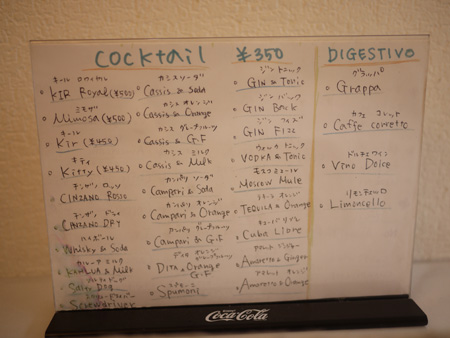 COCKTAIL ¥350
キール ロワイヤル
KIR Royal (¥500)
ミモザ
Mimosa (¥500)
キール
Kir (¥450)
キティ
Kitty (¥450)
チンザノ ロッソ
CINZANO ROSSO
チンザノ ドライ
CINZANO DRY
ハイボール
Whisky & Soda
カルーア ミルク
KAHLUA & Milk
Salty Dog
Screwdriver
カシス ソーダ
Cassis & Soda
カシス オレンジ
Cassis & Orange
カシス グレープフルーツ
Cassis & G.F
カシス ミルク
Cassis & Milk
カンパリ ソーダ
Campari & Soda
カンパリ オレンジ
Campari & Orange
カンパリ グレープフルーツ
Campari & G.F
ディタ オレンジ
DITA & Orange
G.F
スプモーニ
Spumoni
ジン トニック
GIN & Tonic
ジン バック
GIN Back
ジン フィズ
GIN Fizz
ウォッカ トニック
VODKA & Tonic
モスコミュール
Moscow Mule
テキーラ オレンジ
TEQUILA & Orange
キューバ リブレ
Cuba Libre
アマレット ジンジャー
Amaretto & Ginger
アマレット オレンジ
Amaretto & Orange
DIGESTIVO
グラッパ
Grappa
カフェ コレット
Caffe corretto
ドルチェ ワイン
Vino Dolce
リモンチェッロ
Limoncello
Coca-Cola